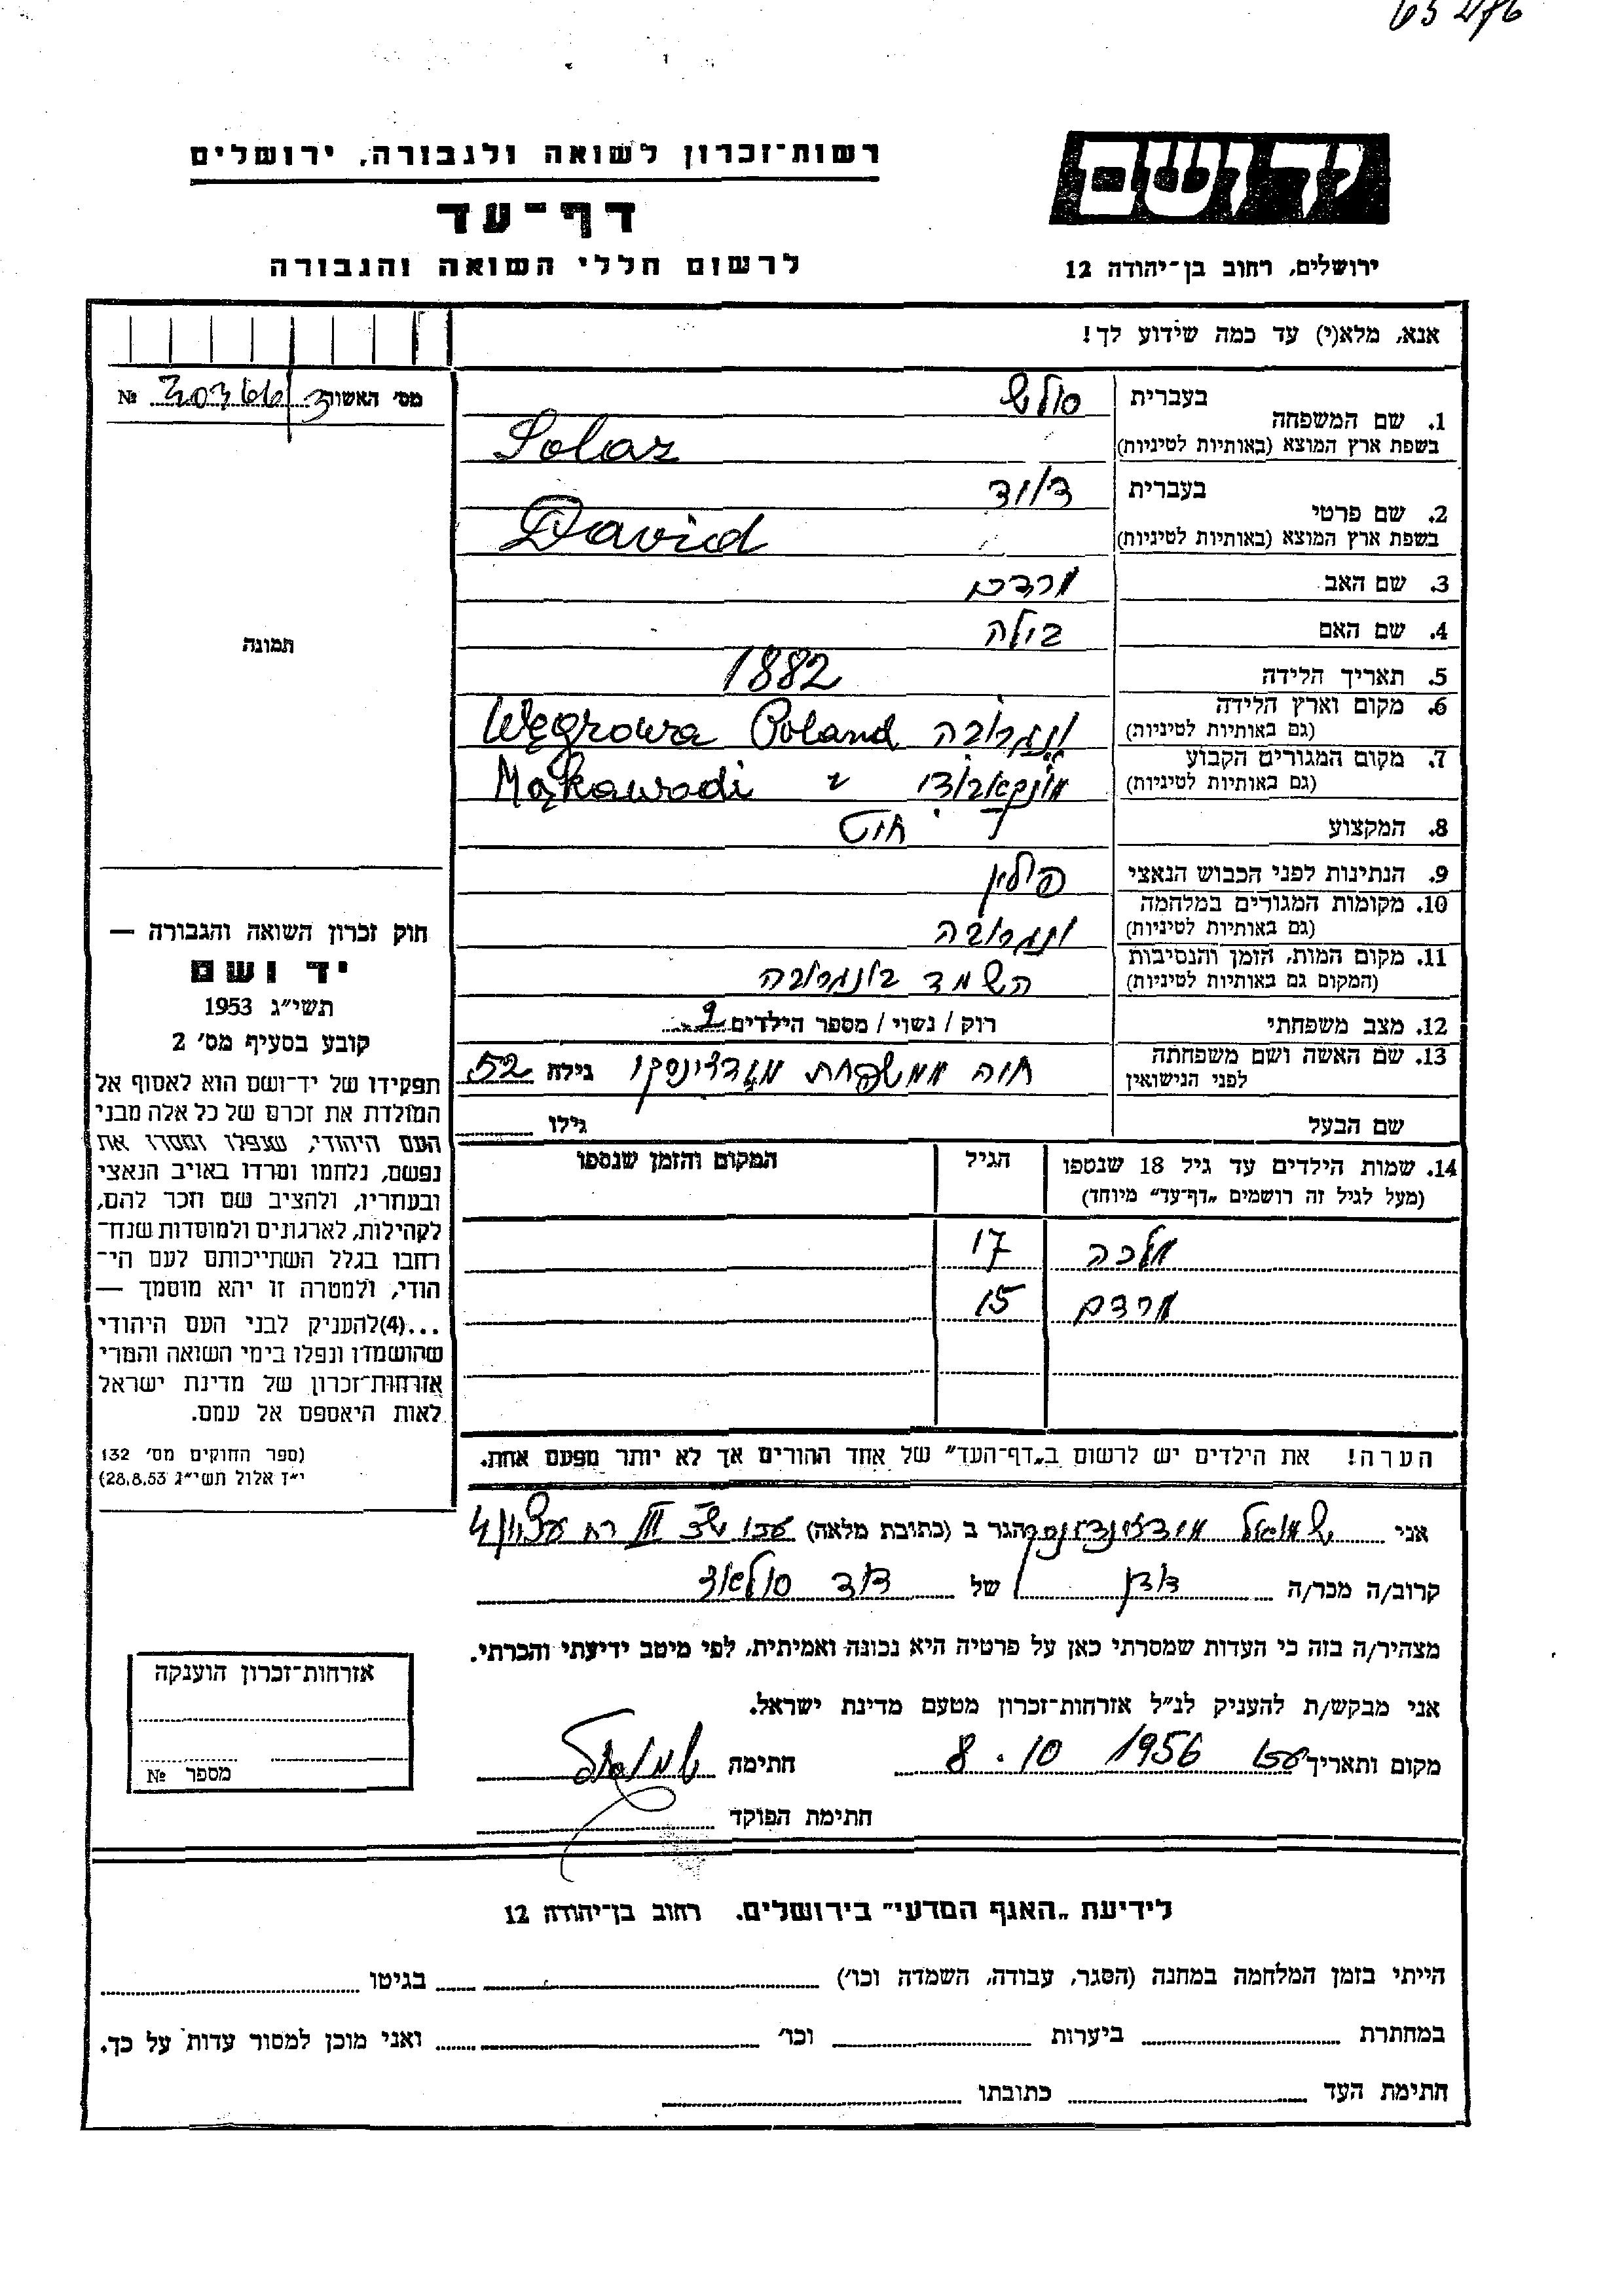 רשות־זכרון לשואה ולגבורה, ירושלים
דף־עד
לרשום חללי השואה והגבורה
יד ושם
ירושלים, רחוב בן־יהודה 12
אנא, מלא(י) עד כמה שידוע לך!
מס' האשור № 303661/3
1. שם המשפחה בעברית סולש
בשפת ארץ המוצא (באותיות לטיניות) Solaz
2. שם פרטי בעברית דוד
בשפת ארץ המוצא (באותיות לטיניות) David
3. שם האב מרדכי
4. שם האם בילה
5. תאריך הלידה 1882
6. מקום וארץ הלידה ונגרובה Poland Węgrowa
(גם באותיות לטיניות)
7. מקום המגורים הקבוע Mąkawodi
(גם באותיות לטיניות)
8. המקצוע
9. הנתינות לפני הכבוש הנאצי פולין
10. מקומות המגורים במלחמה ונגרובה
(גם באותיות לטיניות)
11. מקום המות, הזמן והנסיבות הושמד בונגרובה
(המקום גם באותיות לטיניות)
12. מצב משפחתי רוק / נשוי / מספר הילדים 2
13. שם האשה ושם משפחתה חוה ממשפחת גילה 52
לפני הנישואין
שם הבעל גילו
14. שמות הילדים עד גיל 18 שנספו הגיל המקום והזמן שנספו
(מעל לגיל זה רושמים „דף־עד״ מיוחד)
מלכה 17
מרדכי 15
הערה! את הילדים יש לרשום ב„דף־העד״ של אחד ההורים אך לא יותר מפעם אחת.
תמונה
חוק זכרון השואה והגבורה —
יד ושם
תשי״ג 1953
קובע בסעיף מס' 2
תפקידו של יד־ושם הוא לאסוף אל
המולדת את זכרם של כל אלה מבני
העם היהודי, שנפלו ומסרו את
נפשם, נלחמו ומרדו באויב הנאצי
ובעוזריו, ולהציב שם וזכר להם,
לקהילות, לארגונים ולמוסדות שנח־
רחבו בגלל השתייכותם לעם הי־
הודי, ולמטרה זו יהא מוסמך —
...(4) להעניק לבני העם היהודי
שהושמדו ונפלו בימי השואה והמרי
אזרחות־זכרון של מדינת ישראל
לאות היאספם אל עמם.
(ספר החוקים מס' 132
י״ז אלול תשי״ג 28.8.53)
אני שמואל הגר ב (כתובת מלאה) עכו
קרוב/ה מכר/ה של דוד
מצהיר/ה בזה כי העדות שמסרתי כאן על פרטיה היא נכונה ואמיתית, לפי מיטב ידיעתי והכרתי.
אני מבקש/ת להעניק לנ״ל אזרחות־זכרון מטעם מדינת ישראל.
מקום ותאריך עכו 8.10 1956 חתימה
חתימת הפוקד
אזרחות־זכרון הוענקה
מספר №
לידיעת „האגף המדעי״ בירושלים. רחוב בן־יהודה 12
הייתי בזמן המלחמה במחנה (הסגר, עבודה, השמדה וכו') בגיטו
במחתרת ביערות וכו' ואני מוכן למסור עדות על כך.
חתימת העד כתובתו